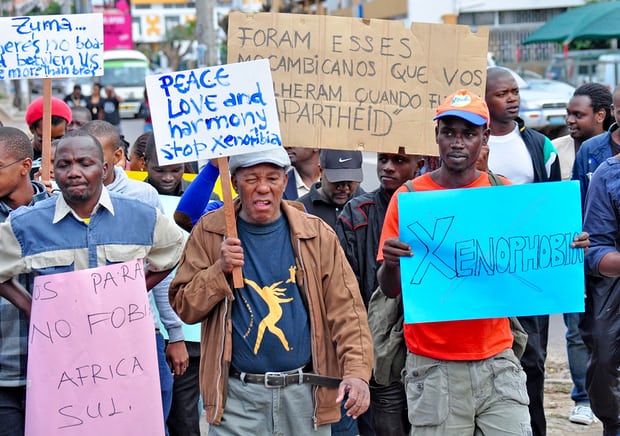 Zuma...
there's no boa
d between us
e more than bro
PEACE
Love and
harmony
Stop Xenofibia
FORAM ESSES
MOCAMBICANOS QUE VOS
LHERAM QUANDO FU
APARTHEID"
XENOPHOBIA
OS PARA
NO FOBI
AFRICA
SUL.